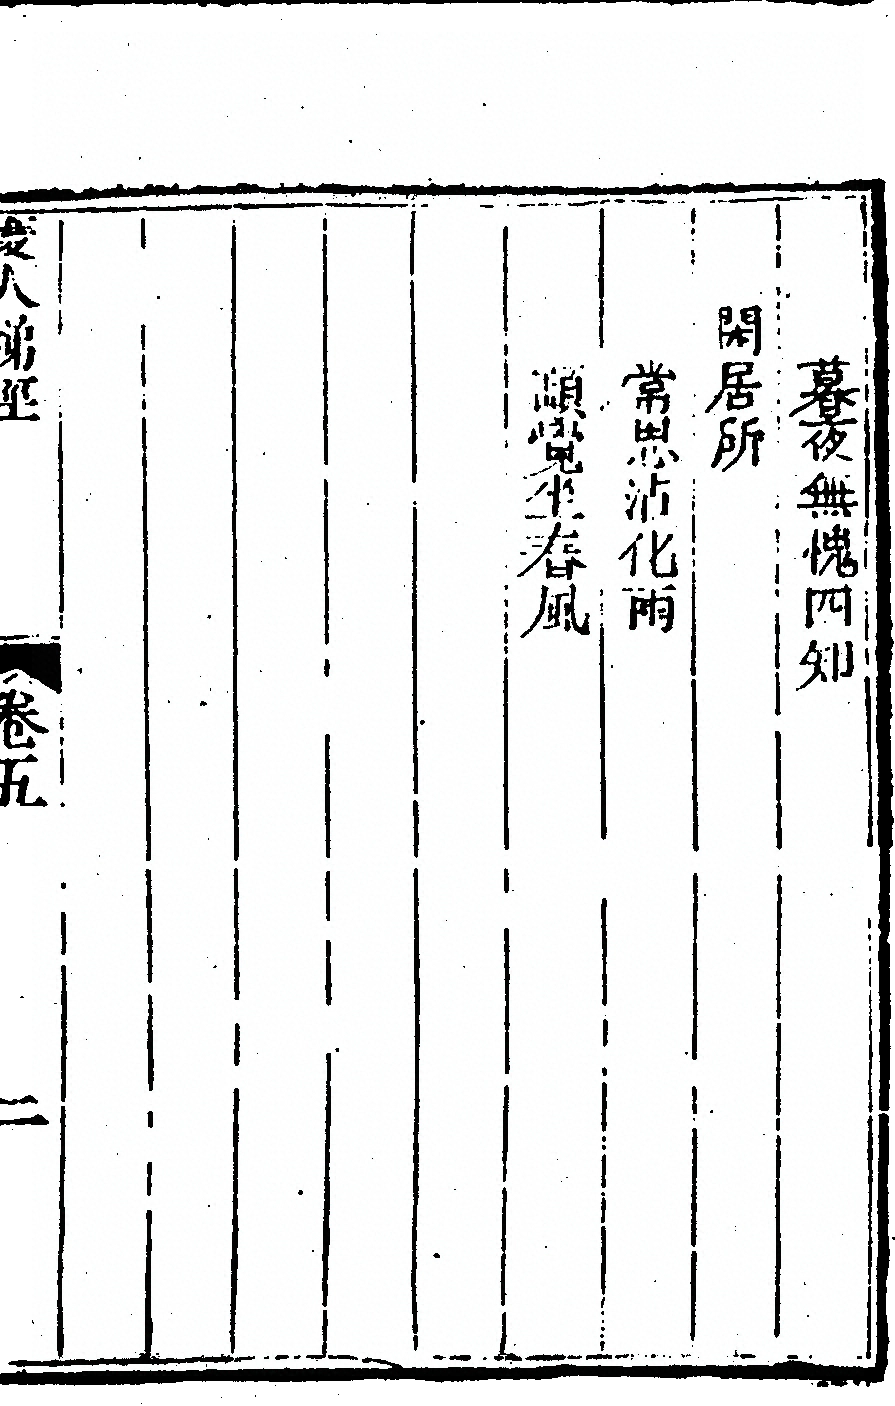 暮夜無愧四知
閑居所
常思沾化雨
頭覺坐春風
人
卷五
二